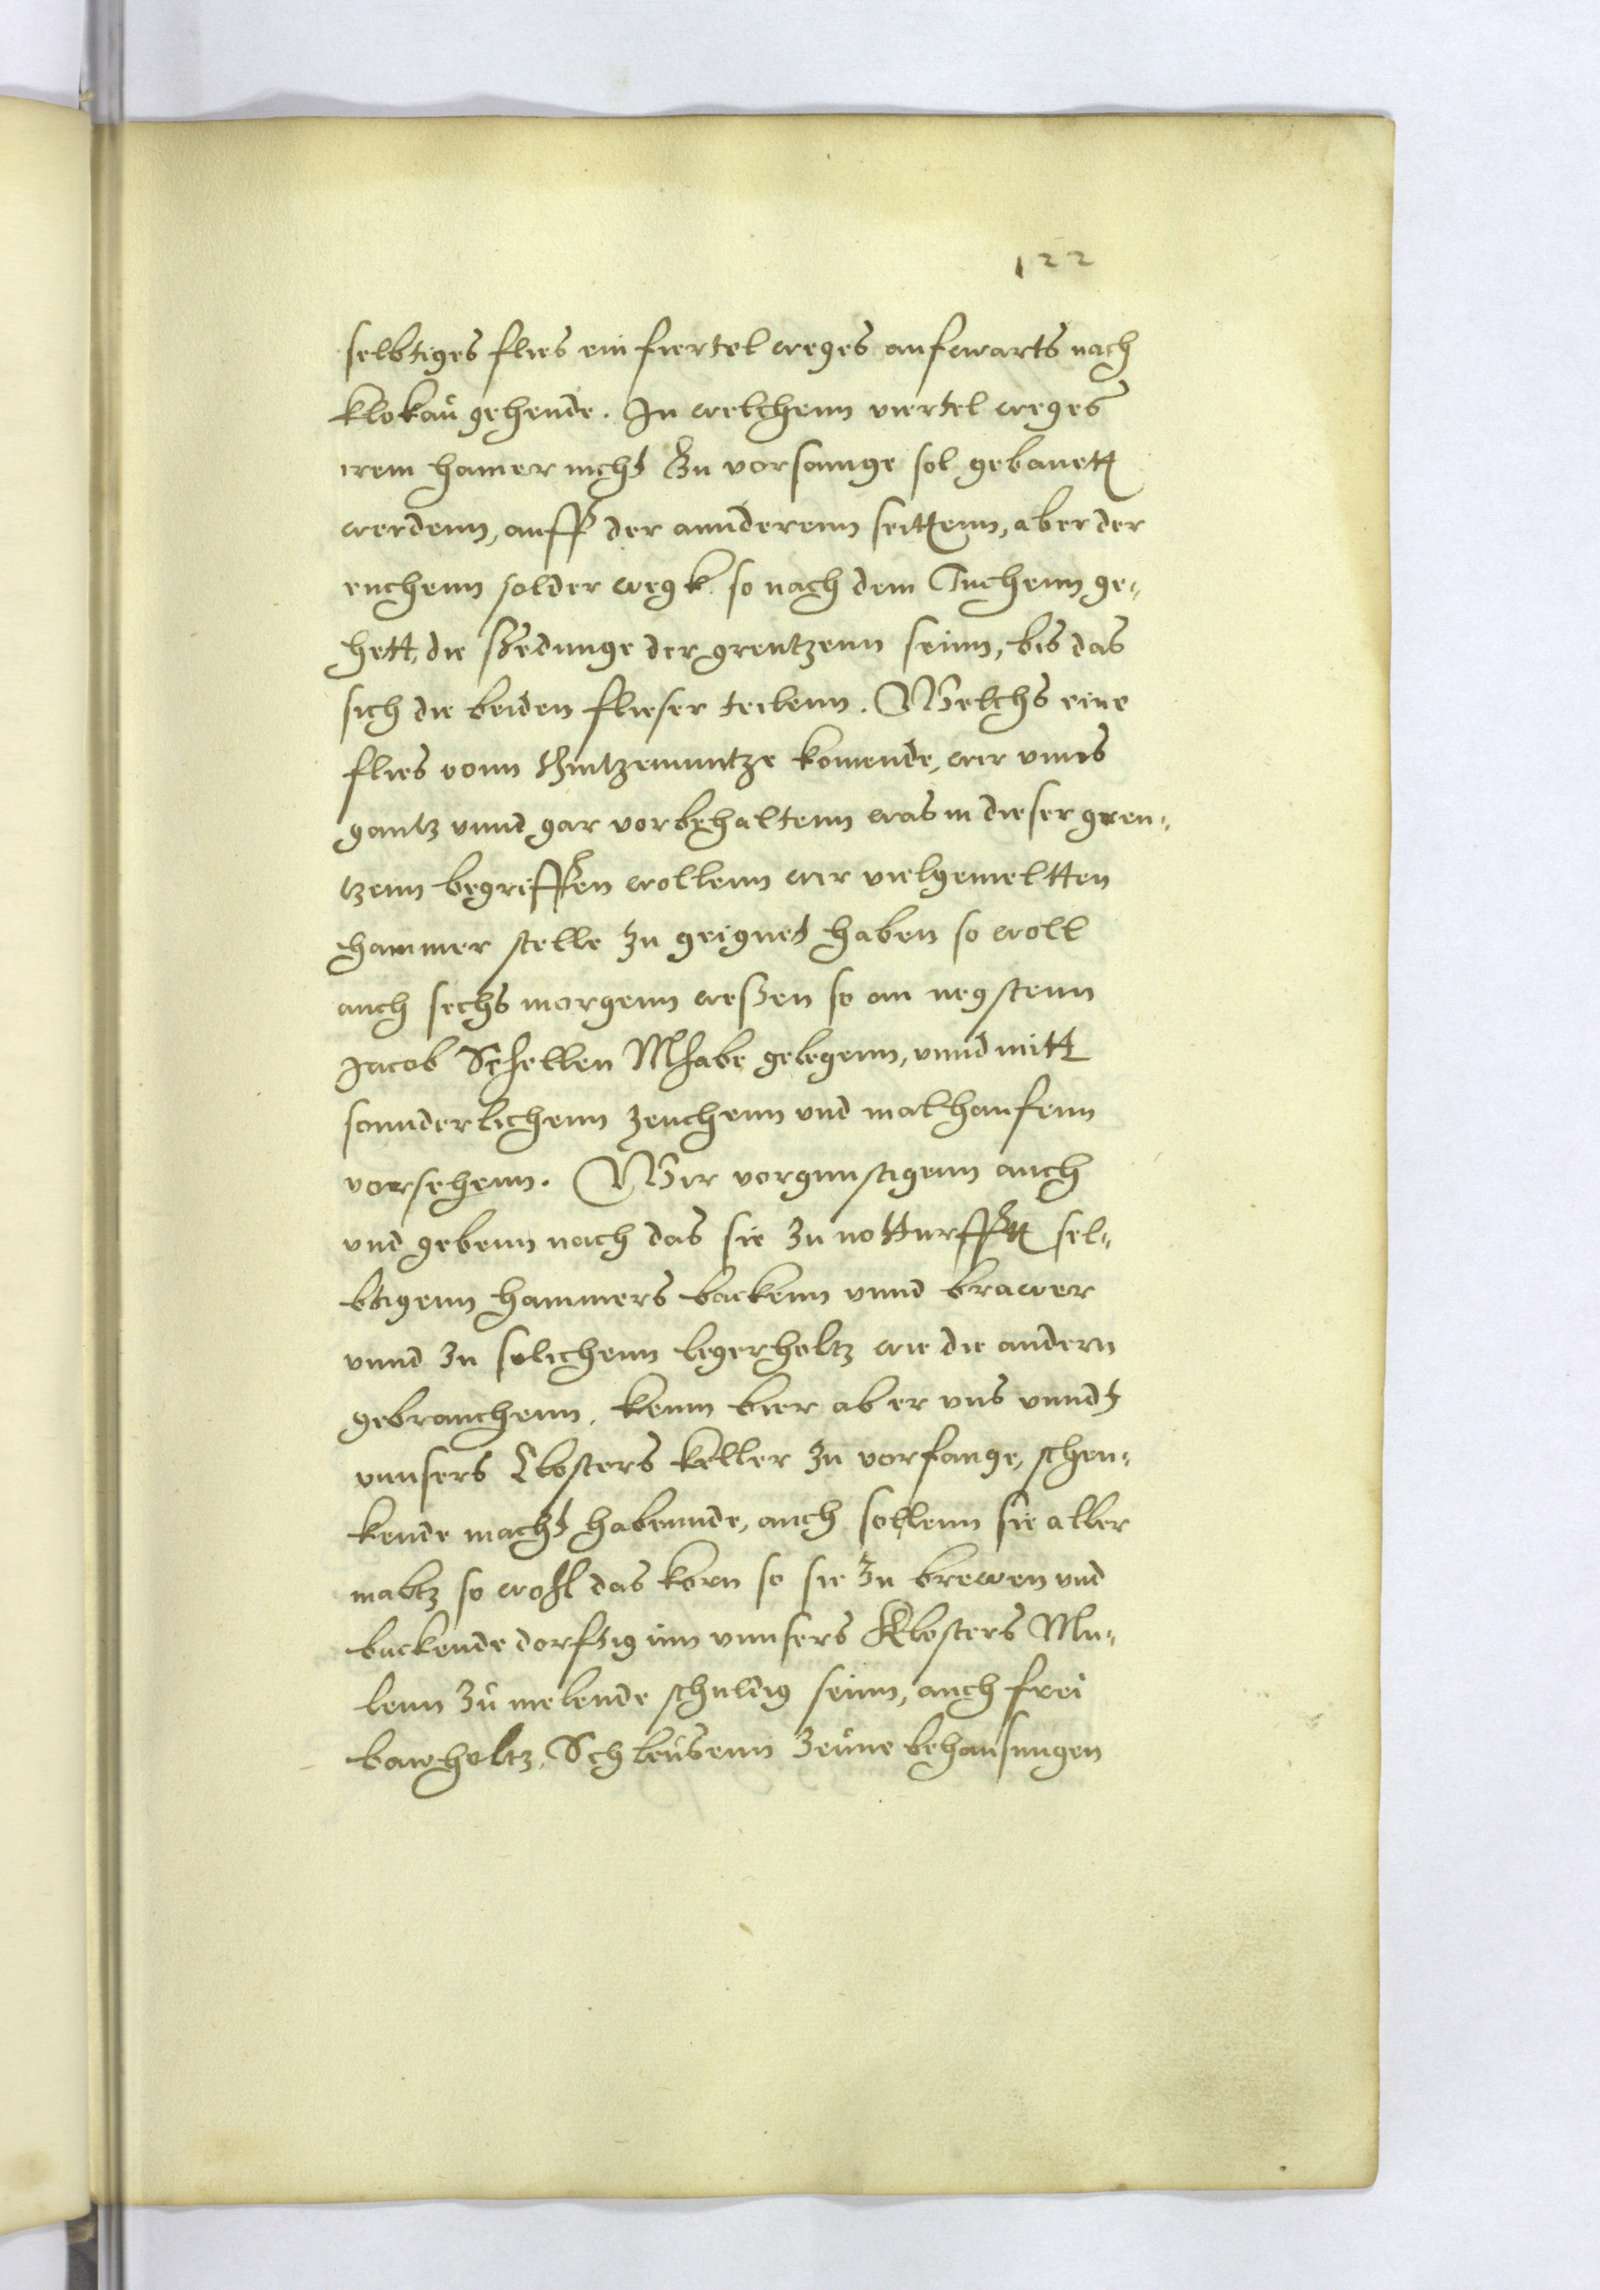 122
selbtiges flies ein fiertel weges aufwarts nach
klokaŭ gehende. In welchenn viertel weges
irem hamer nicht zu vorfannge sol gebauett
werdenn, auff der annderenn seittenn, aber der
euchenn sol der wegk so nach dem Tuchenn ge-
hett, die der grentzenn seinn, bis das
sich die beiden flieser teilenn. Welchs eine
flies vonn komende, wir vnns
gantz vnnd gar vorbehaltenn was in dieser gren-
tzenn begriffen wollenn wir vielgemeltten
hammer stelle zu geignet haben so woll
auch sechs morgenn weßen so am negstenn
Jacob gelegenn, vnnd mitt
sonnderlichenn zeuchenn vnd malhaufenn
vorsehenn. Wir vorgunstigenn auch
vnd gebenn nach das sie zu notturfftt sel-
btigenn hammers backenn vnnd brawer
vnnd zu solichenn legerholtz wie die andern
gebrauchenn. kenn bier aber vns vnndt
vnnsers Closters keller zu vorfange, schen-
kende macht habennde, auch sollenn sie aller
maltz so wohl das korn so sie zu brewen vnd
backende dorfftig inn vnnsers Klosters Mu-
lenn zŭ melende schuldig seinn, auch frei
bawholtz, Schleŭsenn zeŭne behaŭsungen